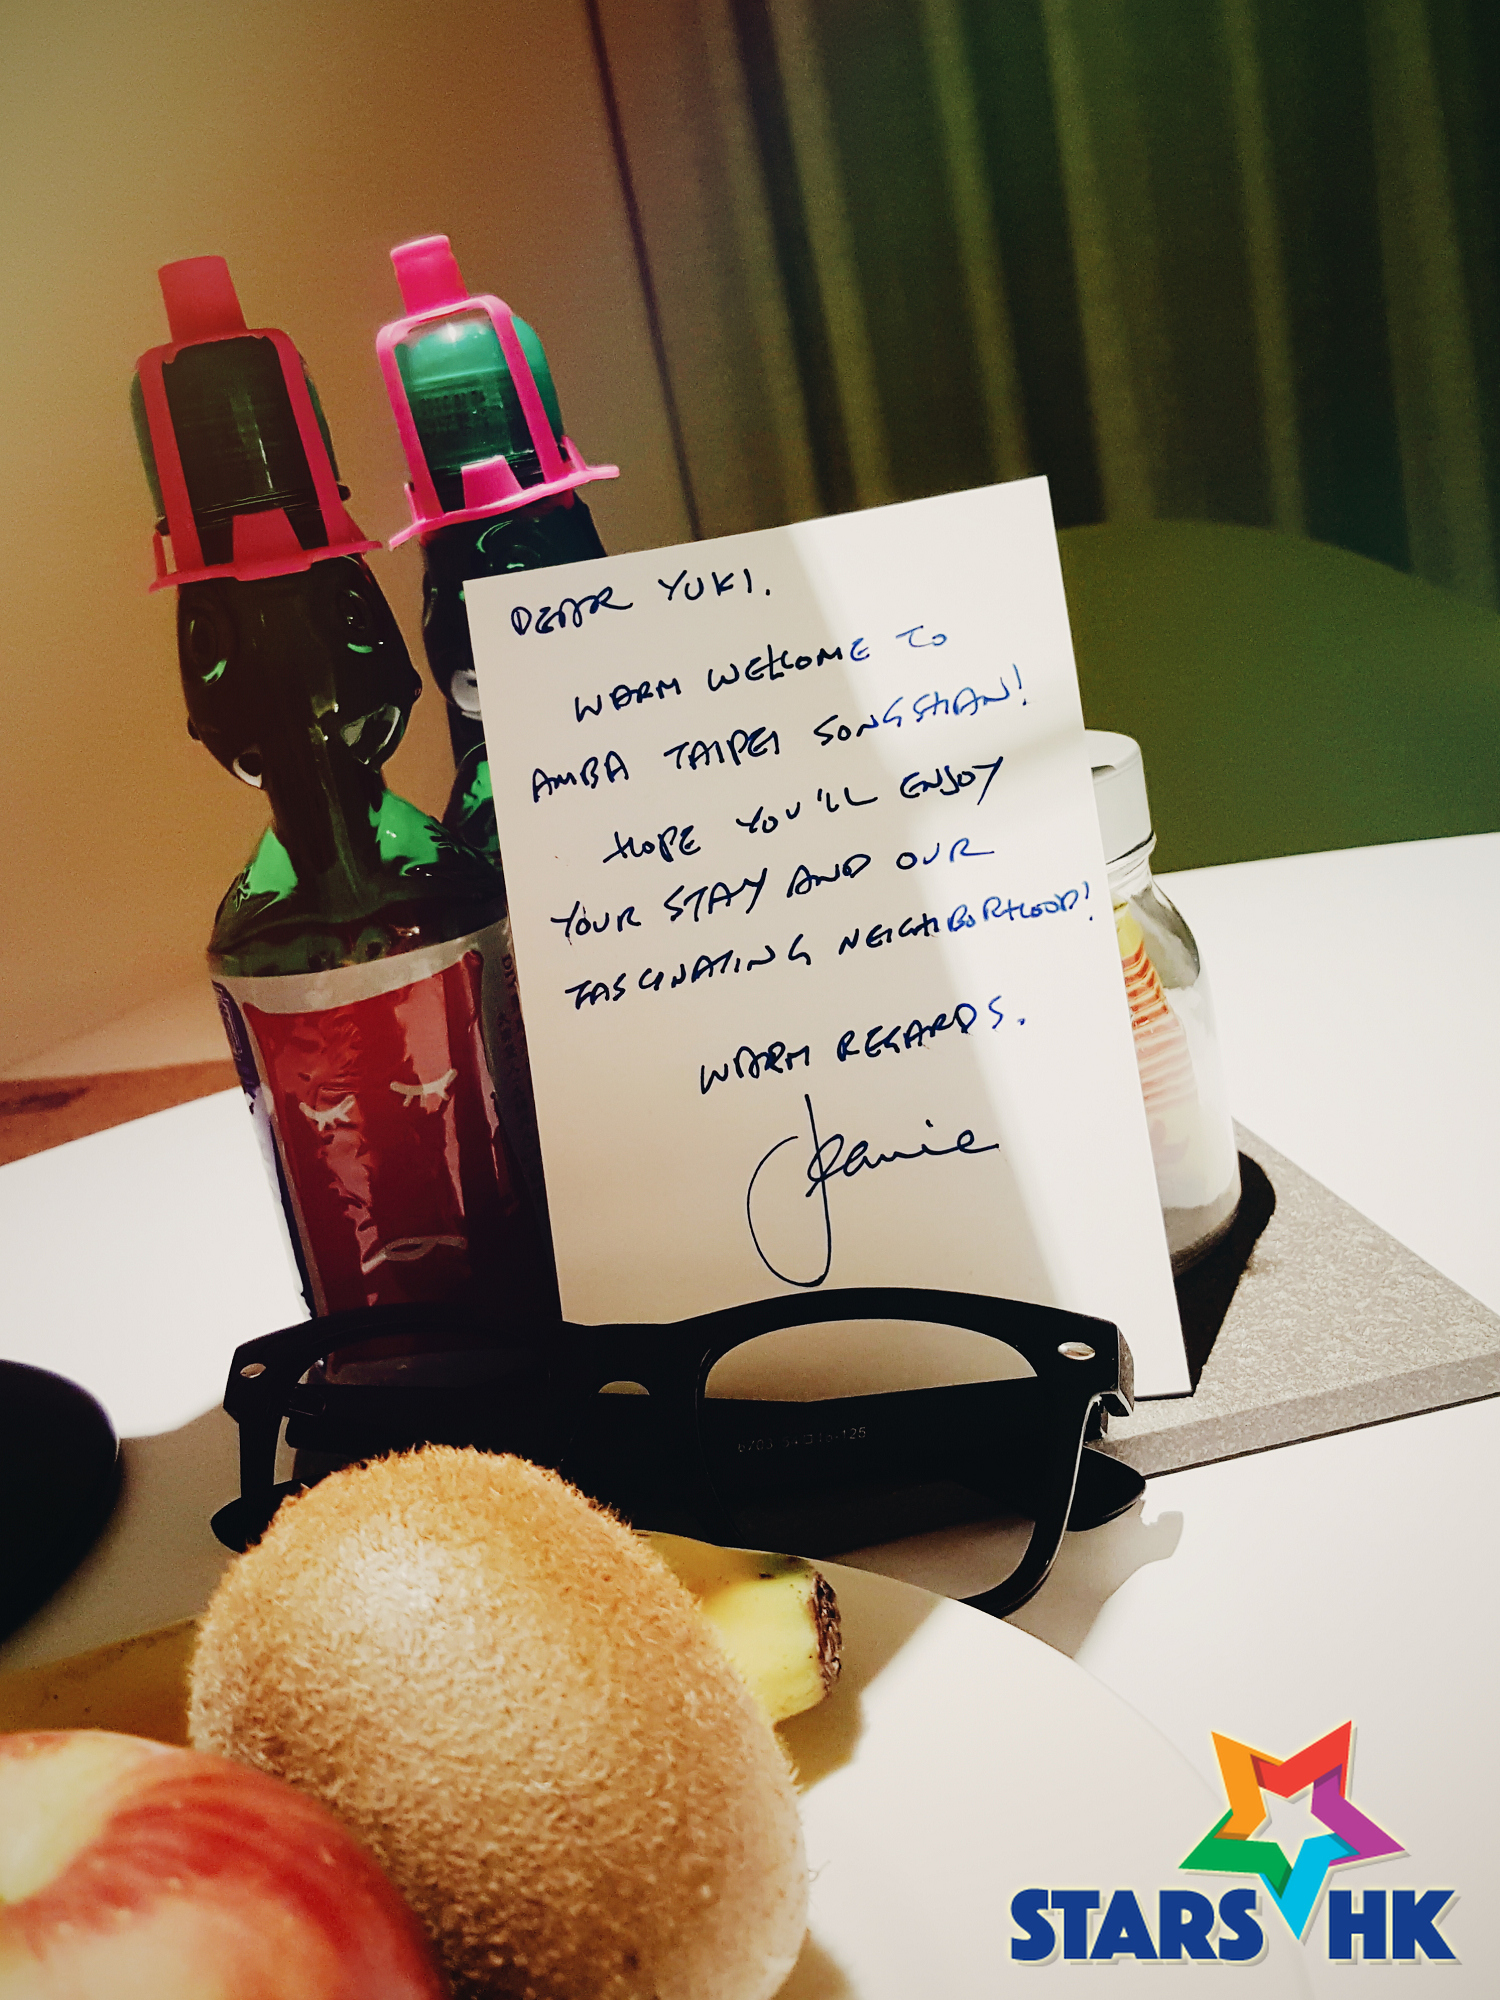 DEAR YUKI.
WARM WELCOME TO
AMBA TAIPEI SONGSHAN!
HOPE YOU'LL ENJOY
YOUR STAY AND OUR
FASCINATING NEIGHBORHOOD!
WARM REGARDS.
Jeanie
STARS HK